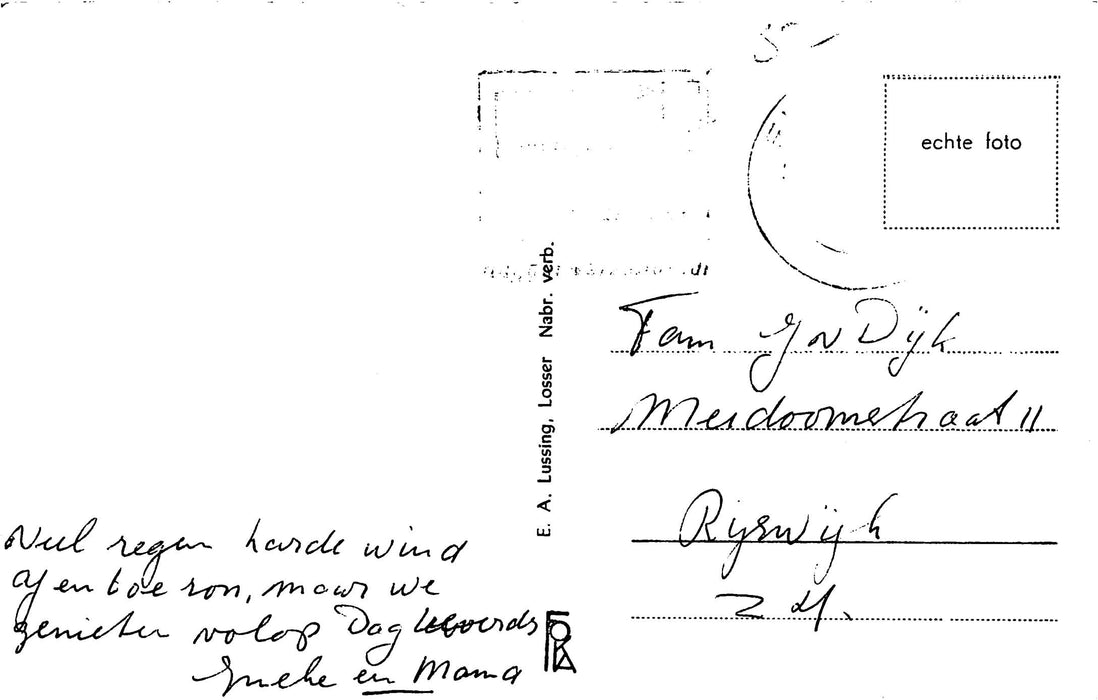 echte foto
E. A. Lussing, Losser Nabr. verb.
Fam G v Dijk
Meidoornstraat 11
Rijswijk
Z H.
Veel regen harde wind
af en toe zon, maar we
genieten volop Dag
Ineke en Mama
FOKA